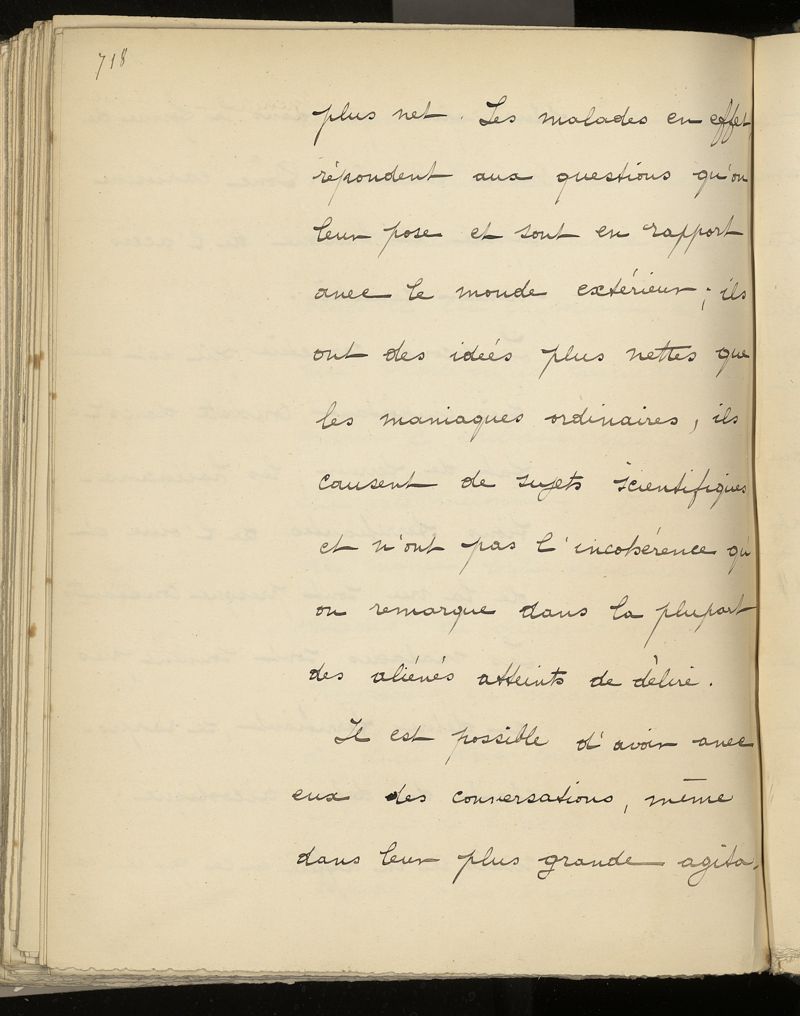 718
plus net. Les malades en effet
répondent aux questions qu'on
leur pose et sont en rapport
avec le monde extérieur; ils
ont des idées plus nettes que
les maniaques ordinaires, ils
causent de sujets scientifiques
et n'ont pas l'incohérence qu'
on remarque dans la plupart
des aliénés atteints de délire.
Il est possible d'avoir avec
eux des conversations, même
dans leur plus grande agita-